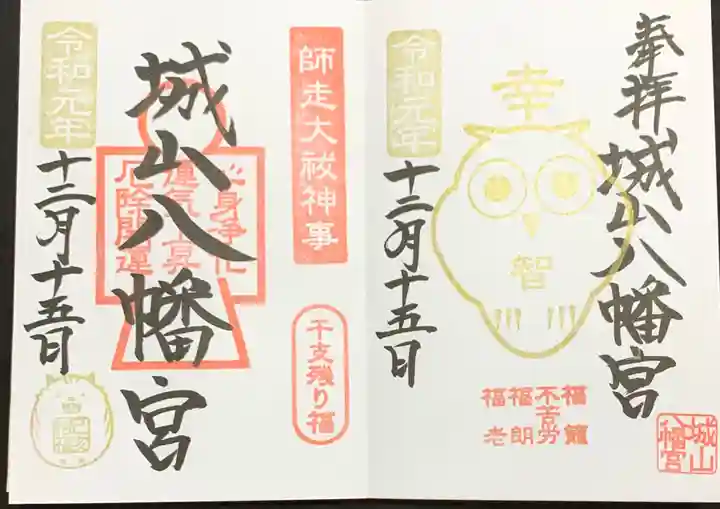 奉拝
城山八幡宮
幸
智
令和元年
十二月十五日
福籠
不苦労
福朗
福老
城山
八幡宮
師走大祓神事
干支残り福
城山八幡宮
心身浄化
厄除開運
令和元年
十二月十五日